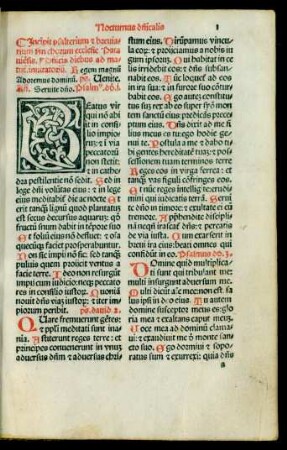 Nocturnus dñicalis
1
Incipit psalteriũ ⁊ breuiarium
Seruite dño. Psalmꝰ. dd. j
Beatus vir
qui nõ abi
it in consi
lio impioꝝ
⁊ ĩ via
peccatoꝝ
nõ stetit:
⁊ in cathe
dra pestilentie nõ sedit. Sed in
lege dñi volũtas eius: ⁊ in lege
eius meditabit̃ die ac nocte. Et
erit tanq̃ lignũ quod plantatum
est secus decursus aquarum: qđ
fructũ suum dabit in tpe suo
Et foliũ eius nõ defluet: ⁊ oĩa
quecũq̃ faciet prosperabuntur.
Non sic impij nõ sic: sed tanq̃
puluis quem proijcit ventus a
facie terre. Ideo non resurgũt
impij in iudicio: neq̃ peccato
res in consilio iustoꝝ. Quoniã
nouit dñs viaz iustoꝝ: ⁊ iter im
piorum peribit. ps. dauid 2.
Quare fremuerunt gẽtes:
⁊ ppli meditati sunt ina
nia. Astiterunt reges terre: et
principes conuenerunt in vnuz
aduersus dñm ⁊ aduersus chri
stum eius. Dirũpamus vincu
la eoꝝ: ⁊ proijciamus a nobis iu
gum ipsoꝝ. Qui habitat in ce
lis irridebit eos: ⁊ dñs subsan
nabit eos. Tũc loquet̃ ad eos
in ira sua: ⁊ in furore suo cõtur
babit eos. Ego autẽ cõstitutus
suz rex ab eo super syõ montem
sanctũ eius predicãs preceptum
eius. Dñs dixit ad me filius
meus es tu ego hodie genui
te. Postula a me ⁊ dabo ti
bi gentes hereditatẽ tuaz: ⁊ pos
sessionem tuam terminos terre
Reges eos in virga ferrea: ⁊ ta
nq̃ vas figuli cõfringes eos.
Et nũc reges intelligite: erudi
mini qui iudicatis terrã. Serui
te dño in timore: ⁊ exultate ei cũ
tremore. Apprehendite discipli
nã neq̃ñ irascat̃ dñs: ⁊ pereatis
de via iusta. Cum exarserit in
breui ira eius: beati omnes qui
confidũt in eo. Psalmus dd. 3.
Domine quid multiplicati
sunt qui tribulant me:
multi insurgunt aduersum me.
Multi dicũt aĩe mee: non est sa
lus ipsi in deo eius. Tu autem
domine susceptor meus es: glo
ria mea ⁊ exaltans caput meuz.
Voce mea ad dominũ clama
ui: ⁊ exaudiuit me de monte san
cto suo. Ego dormiui ⁊ sopo
ratus sum ⁊ exurrexi: quia dñs
a